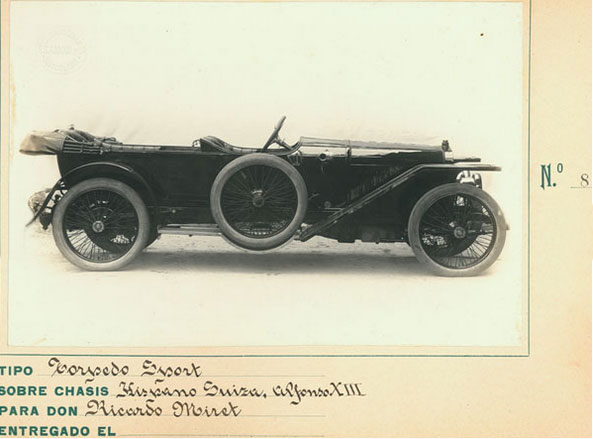 N.º 8
TIPO Torpedo Sport
SOBRE CHASIS Hispano Suiza, Alfonso XIII
PARA DON Ricardo Miret
ENTREGADO EL